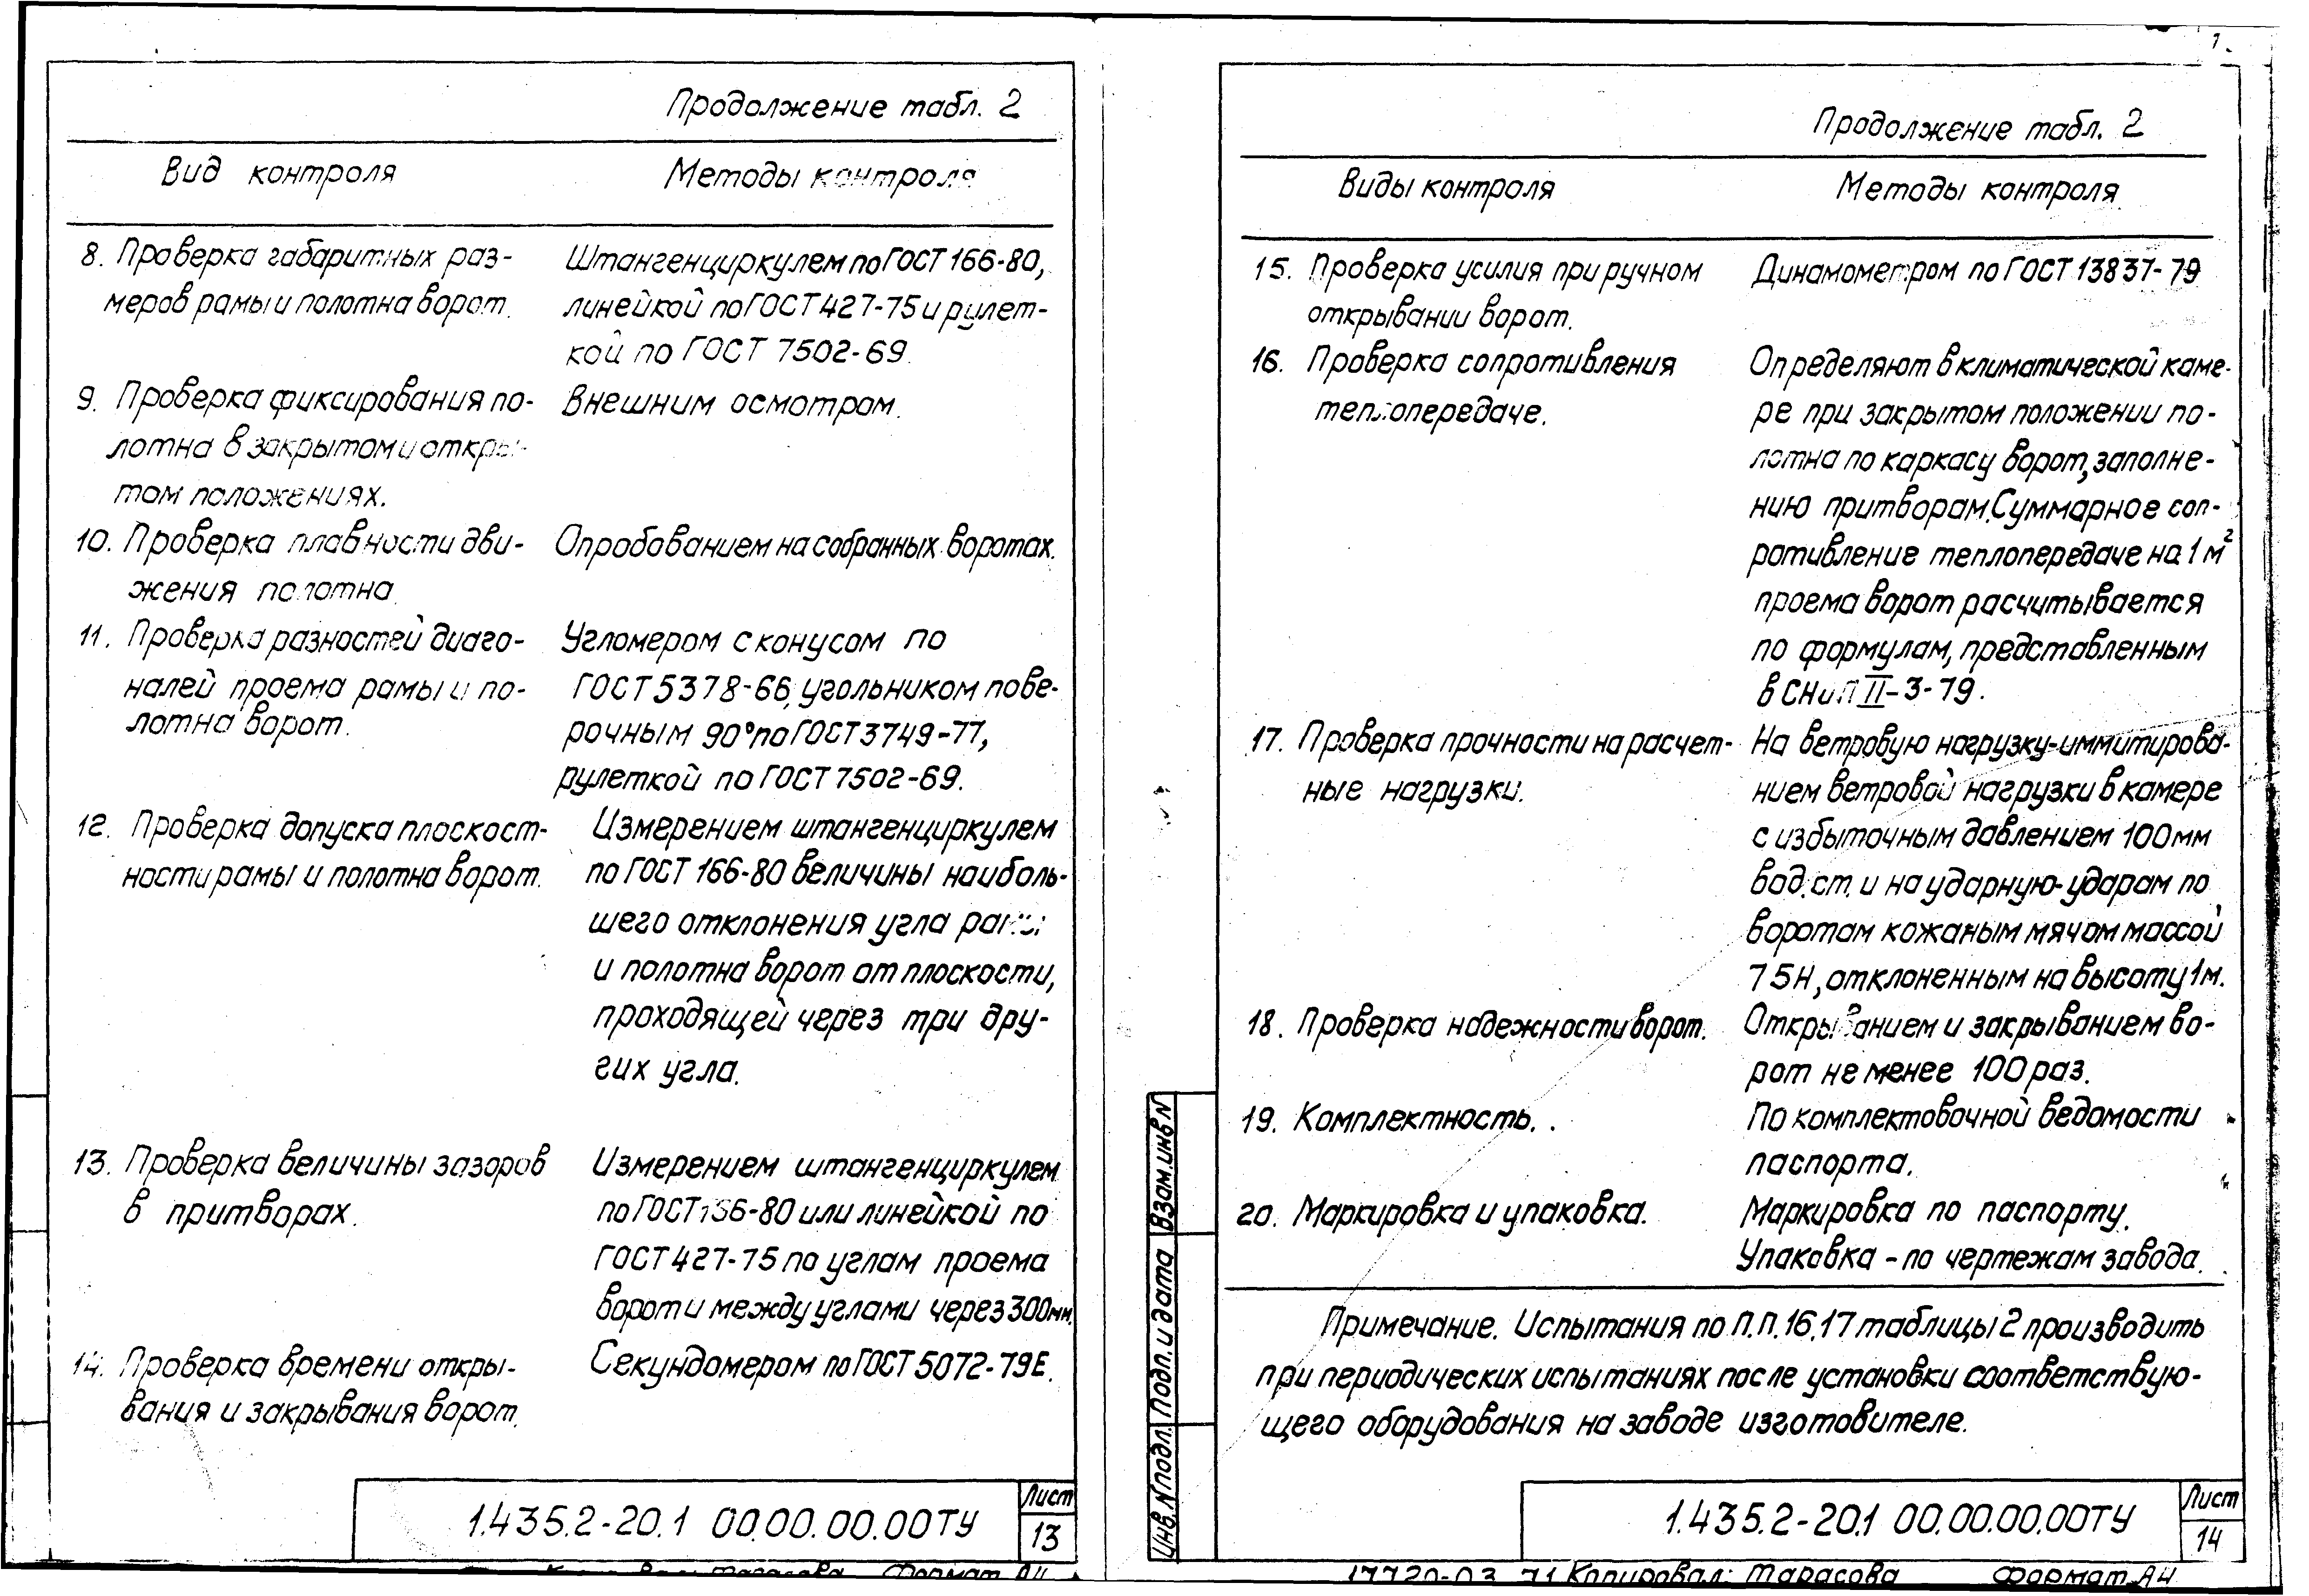 Продолжение табл. 2
Вид контроля Методы контроля
8. Проверка габаритных раз- Штангенциркулем по ГОСТ 166-80,
меров рамы и полотна ворот. линейкой по ГОСТ 427-75 и рулет-
кой по ГОСТ 7502-69.
9. Проверка фиксирования по- Внешним осмотром.
лотна в закрытом и откры-
том положениях.
10. Проверка плавности дви- Опробованием на собранных воротах.
жения полотна.
11. Проверка разностей диаго- Угломером с конусом по
налей проема рамы и по- ГОСТ 5378-66, угольником пове-
лотна ворот. рочным 90° по ГОСТ 3749-77,
рулеткой по ГОСТ 7502-69.
12. Проверка допуска плоскост- Измерением штангенциркулем
ности рамы и полотна ворот. по ГОСТ 166-80 величины наиболь-
шего отклонения угла рамы
и полотна ворот от плоскости,
проходящей через три дру-
гих угла.
13. Проверка величины зазоров Измерением штангенциркулем
в притворах. по ГОСТ 166-80 или линейкой по
ГОСТ 427-75 по углам проема
ворот и между углами через 300мм.
14. Проверка времени откры- Секундомером по ГОСТ 5072-79Е.
вания и закрывания ворот.
1.435.2-20.1 00.00.00.00ТУ
Лист
13
Формат А4
1
Продолжение табл. 2
Виды контроля Методы контроля
15. Проверка усилия при ручном Динамометром по ГОСТ 13837-79
открывании ворот.
16. Проверка сопротивления Определяют в климатической каме-
теплопередаче. ре при закрытом положении по-
лотна по каркасу ворот, заполне-
нию притворам. Суммарное соп-
ротивление теплопередаче на 1 м²
проема ворот расчитывается
по формулам, представленным
в СНиП II-3-79.
17. Проверка прочности на расчет- На ветровую нагрузку-иммитирова-
ные нагрузки. нием ветровой нагрузки в камере
с избыточным давлением 100 мм
вод. ст. и на ударную-ударам по
воротам кожаным мячом массой
75Н, отклоненным на высоту 1м.
18. Проверка надежности ворот. Открыванием и закрыванием во-
рот не менее 100 раз.
19. Комплектность. По комплектовочной ведомости
паспорта.
20. Маркировка и упаковка. Маркировка по паспорту.
Упаковка - по чертежам завода.
Примечание. Испытания по П.П. 16,17 таблицы 2 производить
при периодических испытаниях после установки соответствую-
щего оборудования на заводе изготовителе.
Инв. N подл. Подп. и дата Взам. инв N
1.435.2-20.1 00.00.00.00ТУ
Лист
14
17720-03 71 Копировал: Тарасова Формат А4